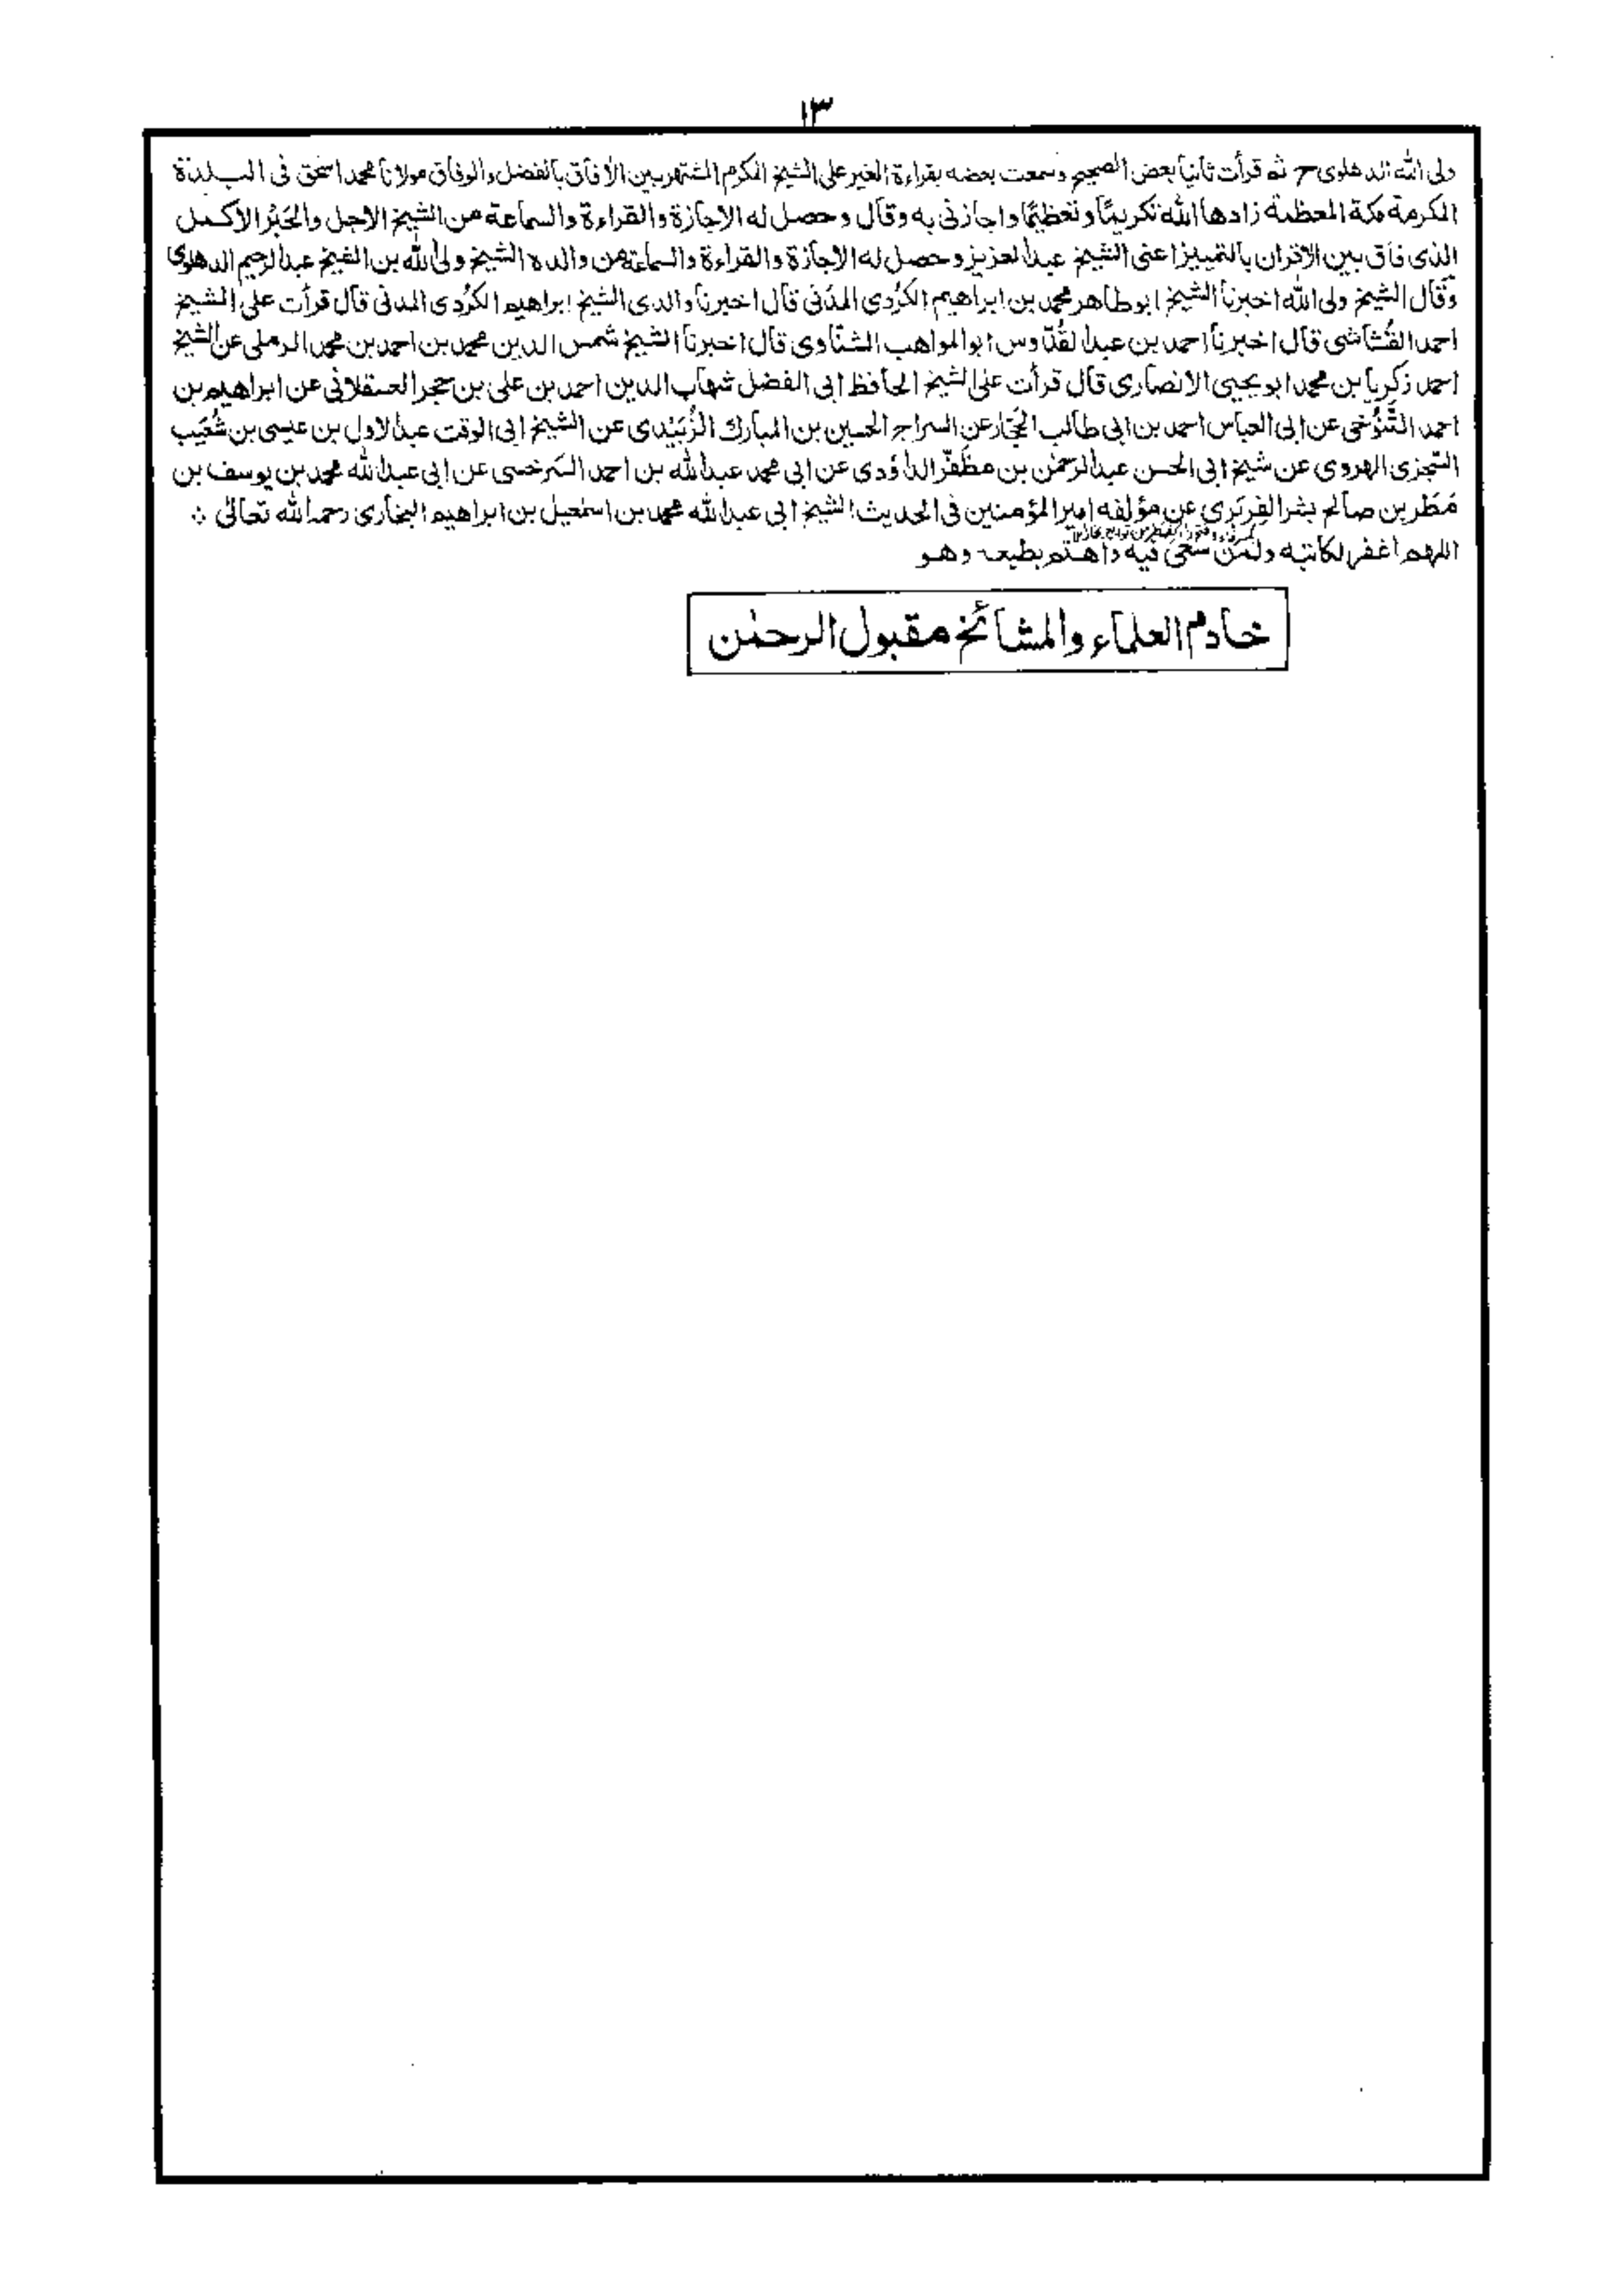 ١٣
ولى الله الدهلوى ح ثم قرأت ثانيا بعض الصحيح وسمعت بعضه بقراءة الغير على الشيخ المكرم المشتهر بين الآفاق بالفضل والوفاق مولانا محمد اسحٰق فى البلدة
المكرمة مكة المعظمة زادها الله تكريمًا وتعظيمًا واجازنى به وقال وحصل له الاجازة والقراءة والسماعة من الشيخ الاجل والحَبْر الاكمل
الذى فاق بين الاقران بالتمييز اعنى الشيخ عبد العزيز وحصل له الاجازة والقراءة والسماعة من والده الشيخ ولى الله بن الشيخ عبد الرحيم الدهلوى
وقال الشيخ ولى الله اخبرنا الشيخ ابو طاهر محمد بن ابراهيم الكُرْدى المدنى قال اخبرنا والدى الشيخ ابراهيم الكُرْدى المدنى قال قرأت على الشيخ
احمد القُشاشى قال اخبرنا احمد بن عبد القُدّوس ابو المواهب الشنّاوى قال اخبرنا الشيخ شمس الدين محمد بن احمد بن محمد الرملى عن الشيخ
احمد زكريا بن محمد ابو يحيى الانصارى قال قرأت على الشيخ الحافظ ابى الفضل شهاب الدين احمد بن على بن حجر العسقلانى عن ابراهيم بن
احمد التَّنُوْخى عن ابى العباس احمد بن ابى طالب الحجّار عن السراج الحسين بن المبارك الزُّبَيْدى عن الشيخ ابى الوقت عبد الاول بن عيسى بن شُعَيب
السّجزى الهروى عن شيخ ابى الحسن عبد الرحمٰن بن مظفّر الداؤدى عن ابى محمد عبد الله بن احمد السَرخسى عن ابى عبد الله محمد بن يوسف بن
مَطَر بن صالح بشر الفِرَبْرى عن مؤلفه امير المؤمنين فى الحديث الشيخ ابى عبد الله محمد بن اسمٰعيل بن ابراهيم البخارى رحمه الله تعالىٰ
اللهم اغفر لكاتبه ولمن سعىٰ فيه واهتم بطبعه وهو
خادم العلماء والمشائخ مقبول الرحمٰن